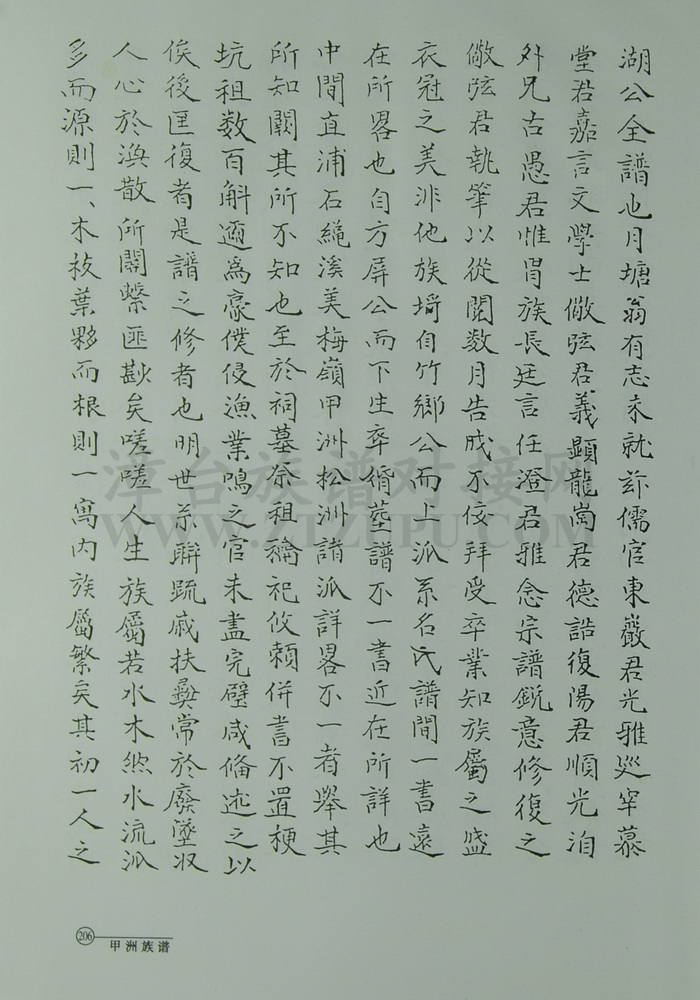 湖公全譜也月塘翁有志未就玆儒官東巖君光雅巡宰慕
堂君嘉言文學士儆弦君義顯龍崗君德誥復陽君順光洎
外兄古愚君惟胃族長廷言任澄君雅念宗譜銳意修復之
儆弦君執筆以從閱数月告成不佞拜受卒業知族屬之盛
衣冠之美非他族埒自竹鄉公而上派系名氏譜間一書遠
在所畧也自方屏公而下生卒婚塟譜不一書近在所詳也
中間直浦石繩溪美梅嶺甲洲松洲諸派詳畧不一者舉其
所知闕其所不知也至於祠墓祭租禴祀攸賴併書不置梗
坑租数百斛邇為豪僕侵漁業鳴之官未盡完璧咸俻述之以
俟後匡復者是譜之修者也明世系聯䟽戚扶彜常於廢墜収
人心於渙散所關繫匪尠矣嗟嗟人生族屬若水木然水流派
多而源則一、木枝葉夥而根則一寓内族屬繁矣其初一人之
206
甲洲族谱
泽台族谱对接网
WWW.ZTZUPU.COM